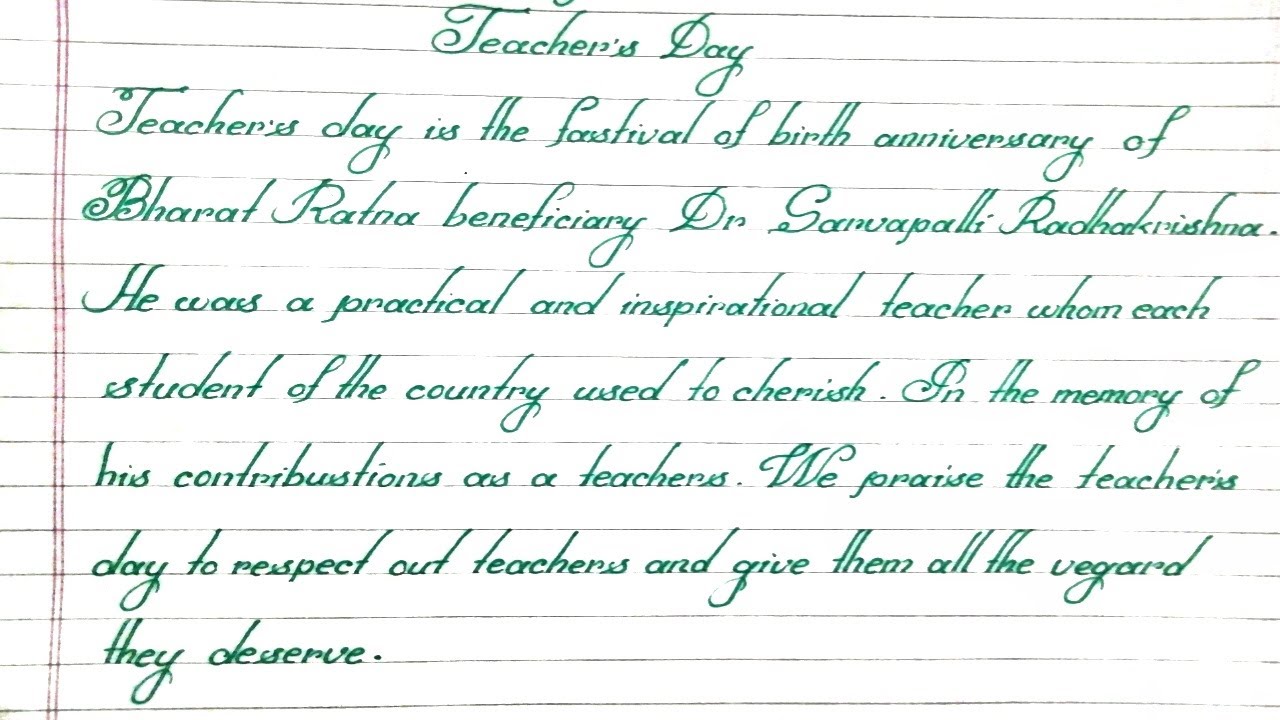 Teacher's Day
Teacher's day is the fastival of birth anniversary of
Bharat Ratna beneficiary Dr Sarvapalli Radhakrishna.
He was a practical and inspirational teacher whom each
student of the country used to cherish. In the memory of
his contribustions as a teachers. We praise the teacher's
day to respect out teachers and give them all the vegard
they deserve.